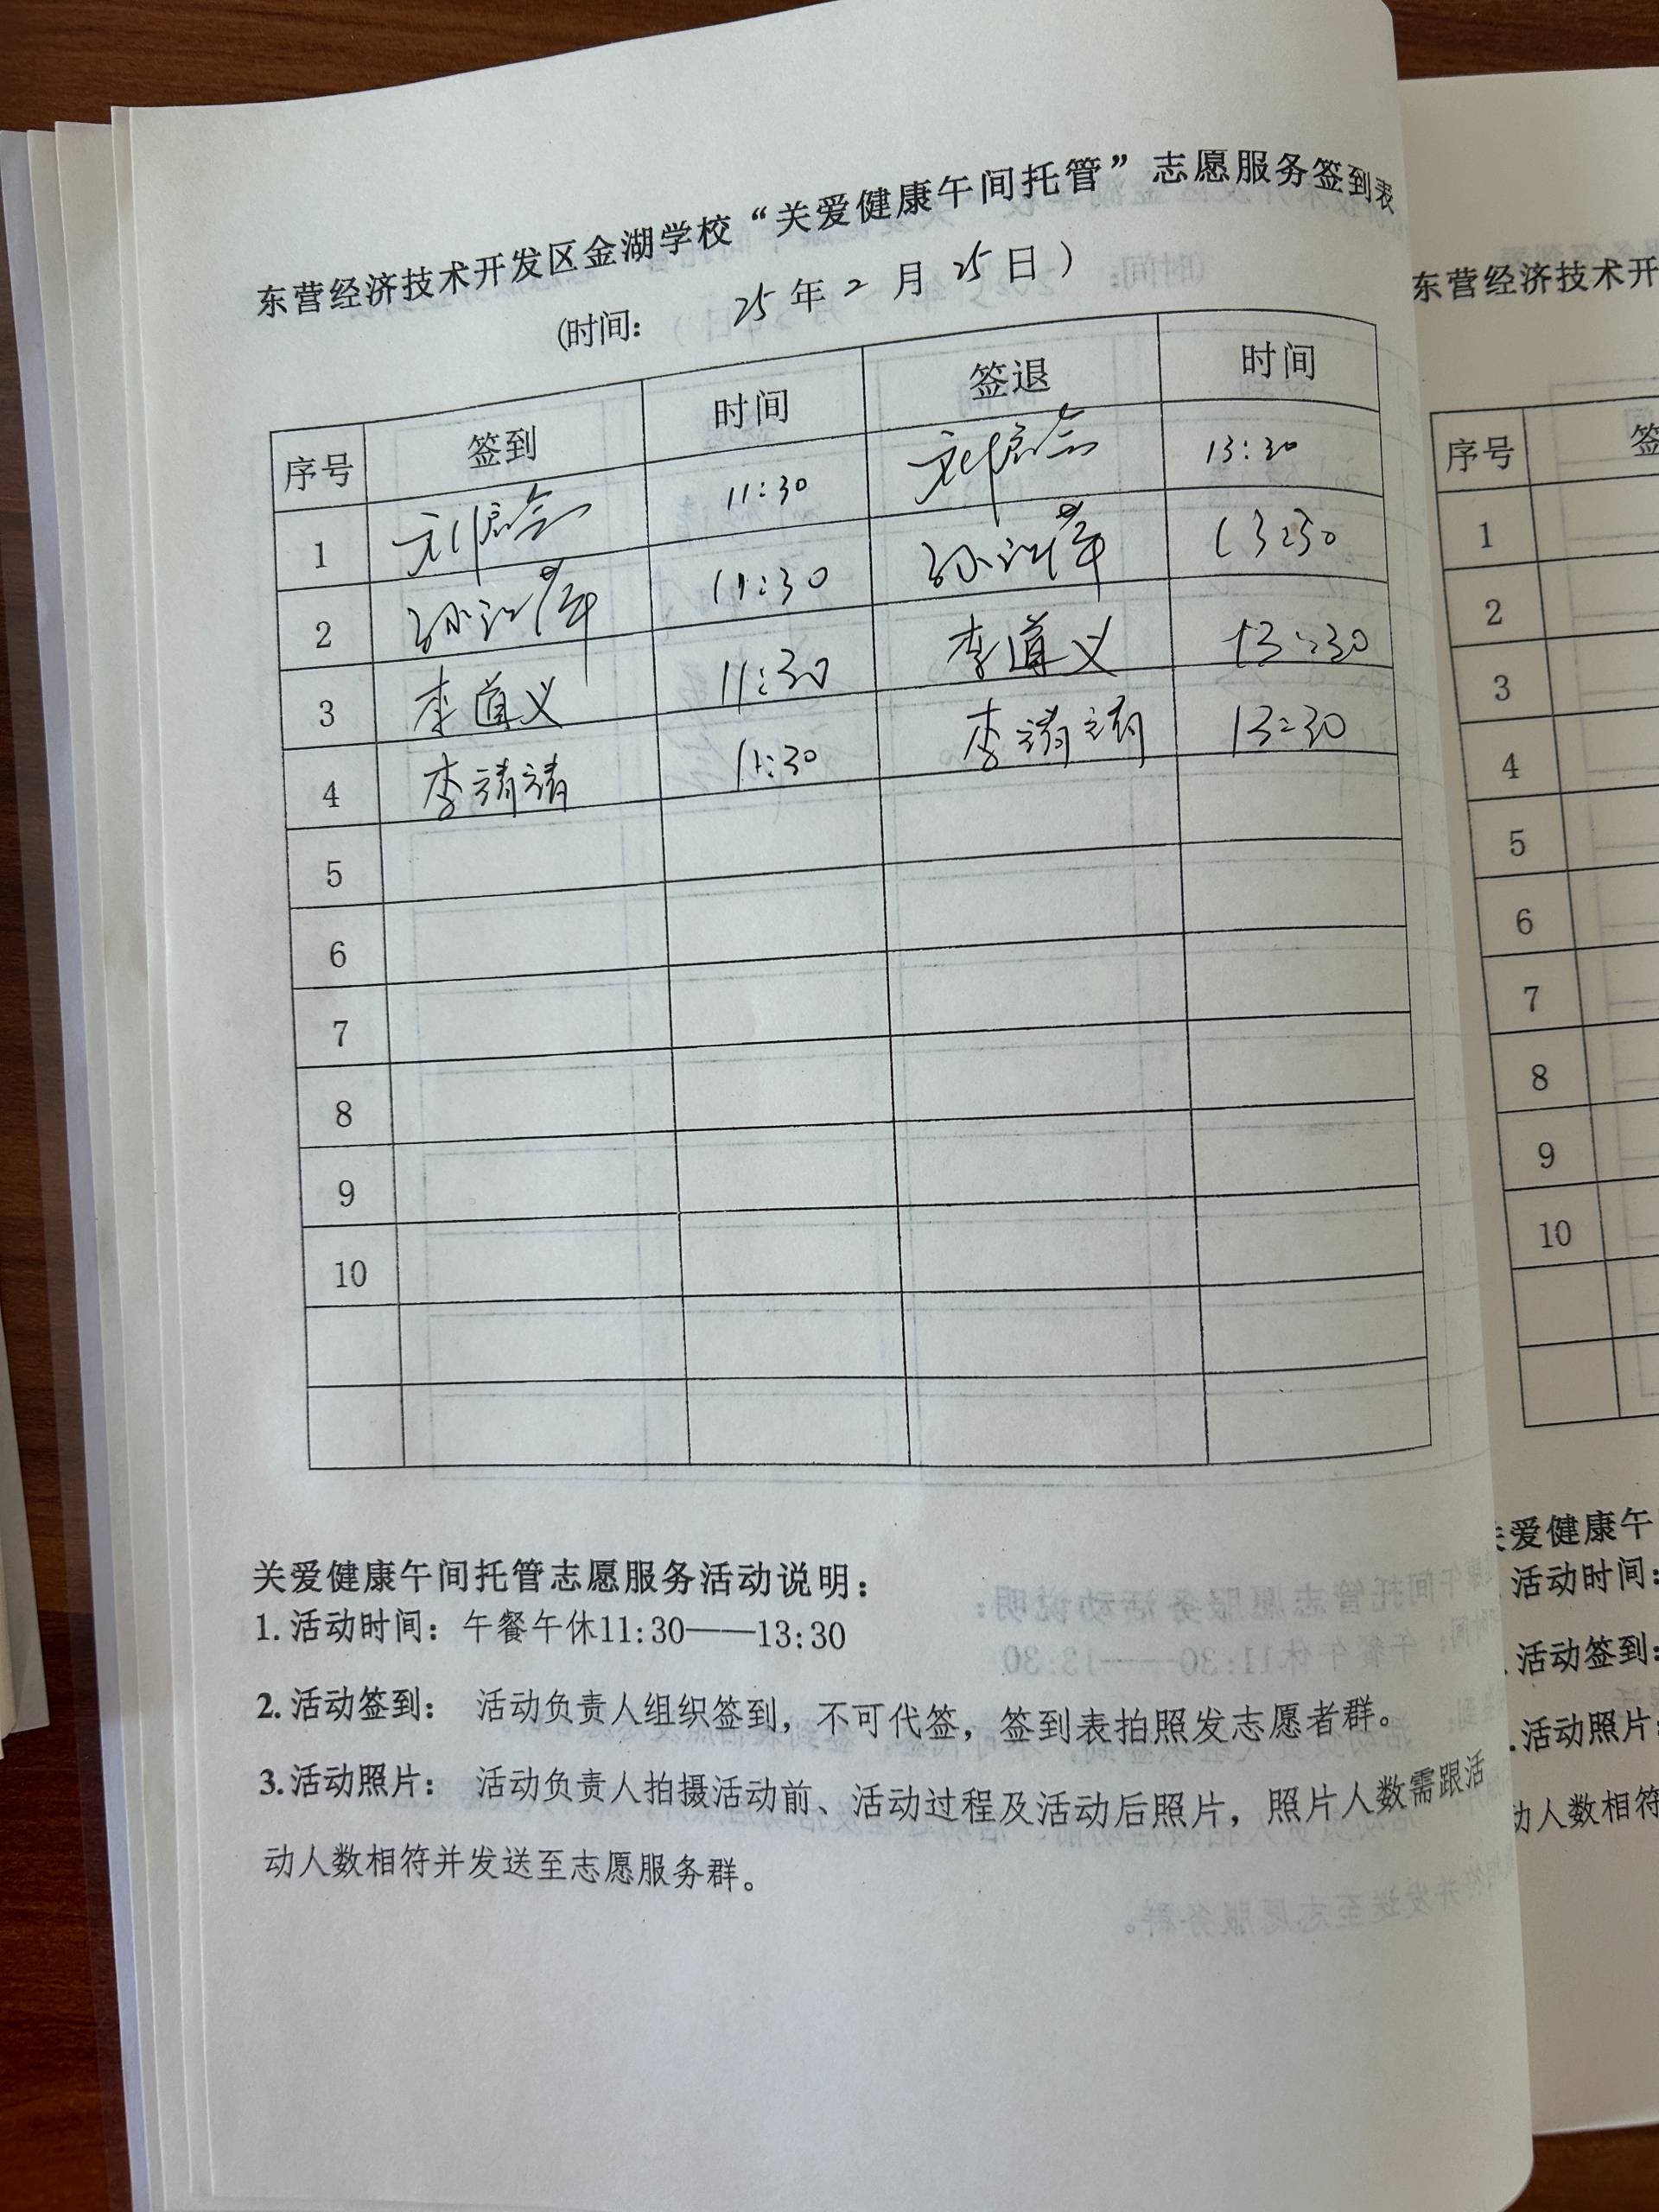 东营经济技术开发区金湖学校“关爱健康午间托管”志愿服务签到表
(时间: 25年2月25日)
序号 签到 时间 签退 时间
1 11:30 13:30
2 11:30 13:30
3 李道义 11:30 李道义 13:30
4 李靖靖 11:30 李靖靖 13:30
5
6
7
8
9
10
关爱健康午间托管志愿服务活动说明:
1.活动时间: 午餐午休11:30——13:30
2.活动签到: 活动负责人组织签到,不可代签,签到表拍照发志愿者群。
3.活动照片: 活动负责人拍摄活动前、活动过程及活动后照片,照片人数需跟活
动人数相符并发送至志愿服务群。
东营经济技术开
序号 签
1
2
3
4
5
6
7
8
9
10
爱健康午
活动时间:
活动签到:
.活动照片:
动人数相符